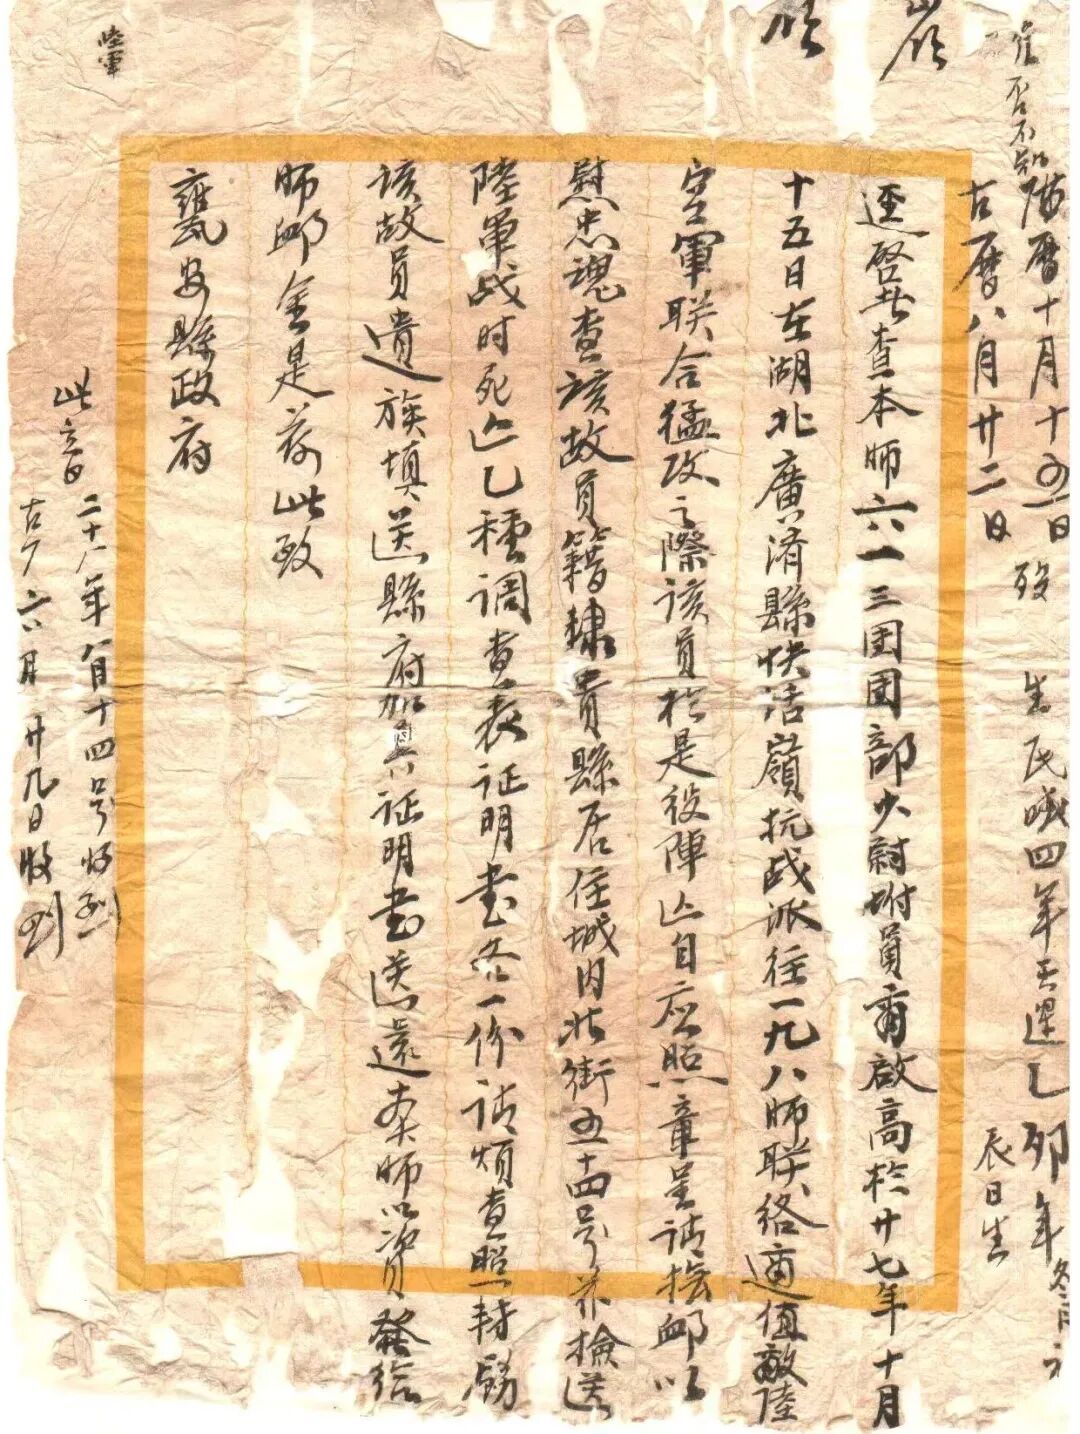 信否不知
陽曆十月十五日歿 生民國四年 乙卯年冬月
古曆八月廿二日 辰日生
逕啓者查本師六一三團團部少尉附員商啟高於廿七年十月
十五日在湖北廣濟縣快活嶺抗战派往一九八师联络適值敵陸
空軍联合猛攻之際該員於是役陣亡自应照章呈请撫卹以
慰忠魂查該故員籍隸貴縣居住城内北街五十四号茲檢送
陸軍战时死亡乙種调查表证明書各一份请烦查照转飭
該故員遺族填送縣府加具证明書送還本师以資發给
卹金是荷此致
甕安縣政府
此音二十八年八月十四号收到
古 六月廿九日收到
陸軍